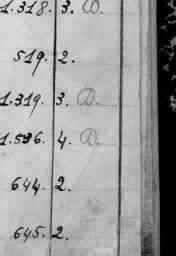 1.318. 3. D.
519. 2.
1.319. 3. D.
1.536. 4. D.
644. 2.
645. 2.